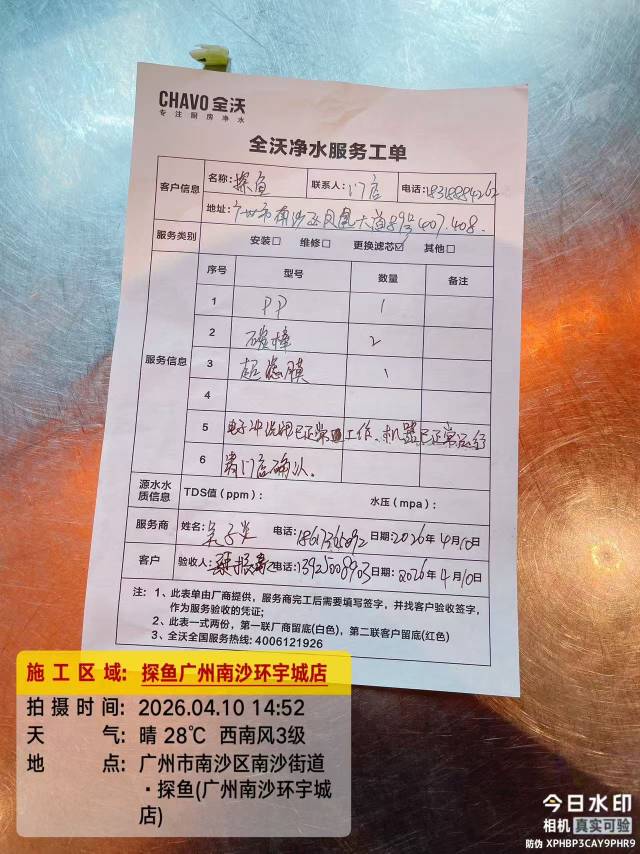 CHAVO 全沃
专注厨房净水
全沃净水服务工单
客户信息 名称: 探鱼 联系人: 门店 电话: 18318884262
地址: 广州市南沙区凤凰大道89号407.408.
服务类别 安装□ 维修□ 更换滤芯☑ 其他□
服务信息 序号 型号 数量 备注
1 PP 1
2 碳棒 2
3 超滤膜 1
4
5 电子冲洗阀已正常工作、机器已正常运行
6 贵门店确认.
源水水质信息 TDS值(ppm): 水压(mpa):
服务商 姓名: 电话: 18617365892 日期: 2026年4月10日
客户 验收人: 电话: 13925008903 日期: 2026年4月10日
注: 1、此表单由厂商提供,服务商完工后需要填写签字,并找客户验收签字,
作为服务验收的凭证;
2、此表一式两份,第一联厂商留底(白色),第二联客户留底(红色)
3、全沃全国服务热线: 4006121926
施工区域: 探鱼广州南沙环宇城店
拍摄时间: 2026.04.10 14:52
天气: 晴 28℃ 西南风3级
地点: 广州市南沙区南沙街道
·探鱼(广州南沙环宇城
店)
今日水印
相机 真实可验
防伪 XPHBP3CAY9PHR9